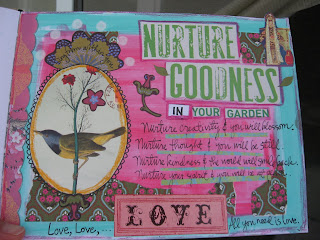 NURTURE
GOODNESS
IN YOUR GARDEN
Nurture creativity & you will blossom.
Nurture thought & you will be still.
Nurture kindness & the world will smile back.
Nurture your spirit & you will be at peace.
LOVE
Love, Love, ...
All you need is love.